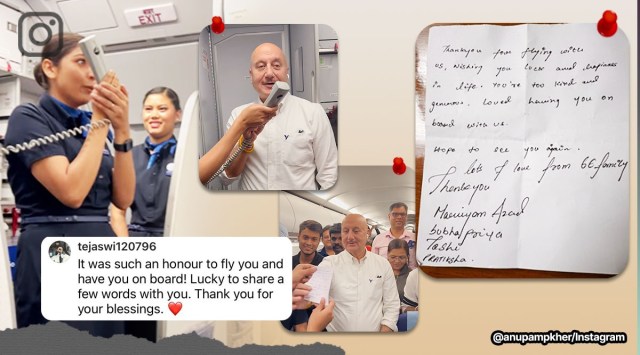 EXIT
tejaswi120796
It was such an honour to fly you and
have you on board! Lucky to share a
few words with you. Thank you for
your blessings. ❤️
Thankyou for flying with
us. Wishing you luck and happiness
in life. You're too kind and
generous. Loved having you on
board with us.
Hope to see you again.
lots of love from 6E family
Thankyou
Azad
Subhapriya
Tashi
PRATIKSHA.
@anupampkher/Instagram